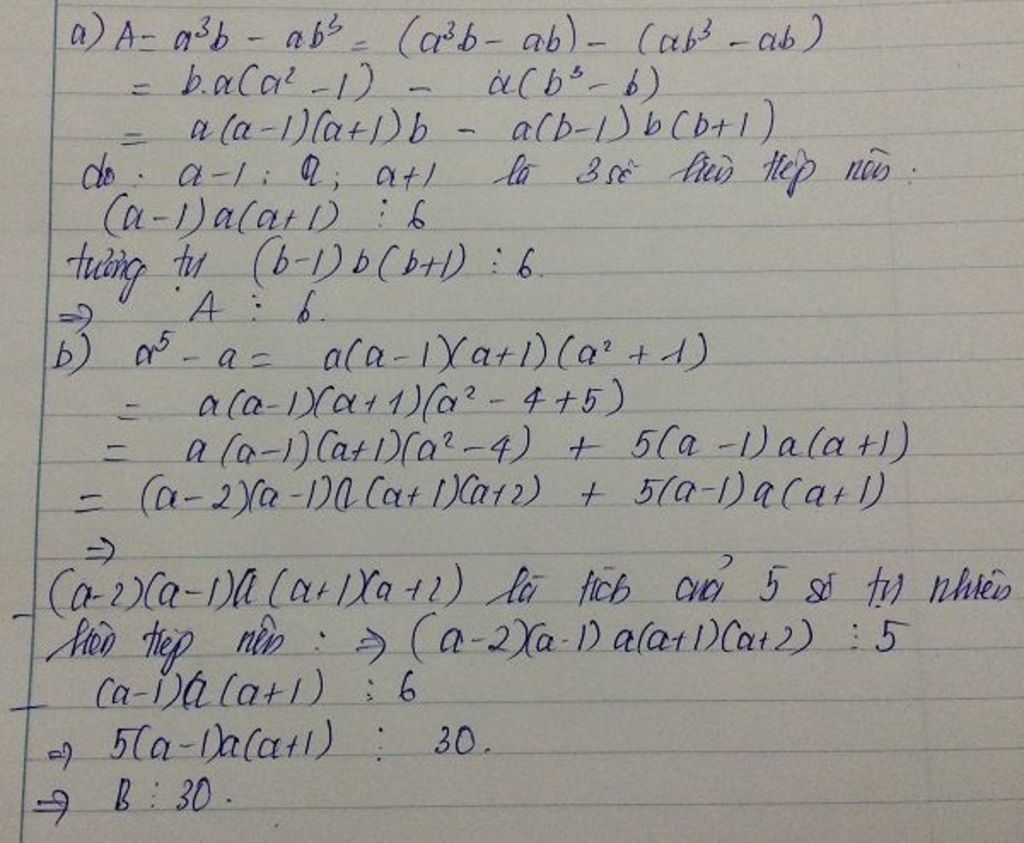 a) A = a³b - ab³ = (a³b - ab) - (ab³ - ab)
= b.a(a² - 1) - a(b³ - b)
= a(a-1)(a+1)b - a(b-1)b(b+1)
do : a-1 ; a ; a+1 là 3 số liên tiếp nên :
(a-1)a(a+1) ⋮ 6
tương tự (b-1)b(b+1) ⋮ 6.
⇒ A ⋮ 6.
b) a⁵ - a = a(a-1)(a+1)(a² + 1)
= a(a-1)(a+1)(a² - 4 + 5)
= a(a-1)(a+1)(a² - 4) + 5(a-1)a(a+1)
= (a-2)(a-1)a(a+1)(a+2) + 5(a-1)a(a+1)
⇒
- (a-2)(a-1)a(a+1)(a+2) là tích của 5 số tự nhiên
liên tiếp nên : ⇒ (a-2)(a-1)a(a+1)(a+2) ⋮ 5
- (a-1)a(a+1) ⋮ 6
⇒ 5(a-1)a(a+1) ⋮ 30.
⇒ B ⋮ 30.